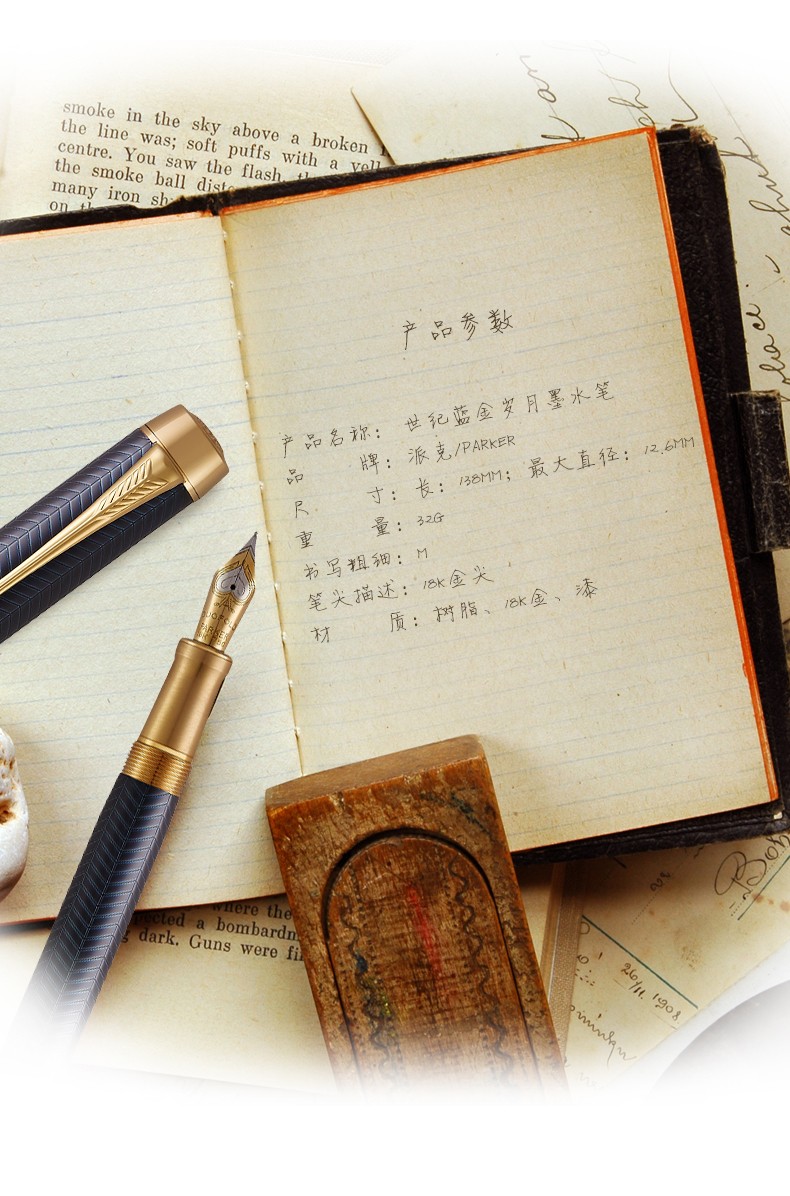 smoke in the sky above a broken
the line was; soft puffs with a yell
centre. You saw the flash, th
the smoke ball dist
many iron sh
on th
产品参数
产品名称：世纪蓝金岁月墨水笔
品牌：派克/PARKER
尺寸：长：138MM；最大直径：12.6MM
重量：32G
书写粗细：M
笔尖描述：18K金尖
材质：树脂、18K金、漆
where the
pected a bombardm
g dark. Guns were fi
26/11 1908